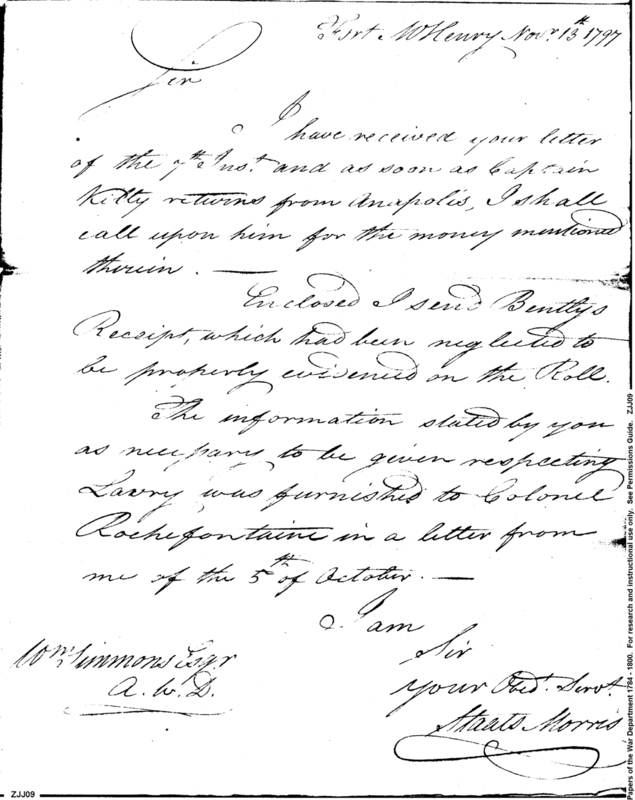 Fort McHenry Novr. 13th 1797
Sir
I have received your letter
of the 7th Inst. and as soon as Captain
Kilty returns from Anapolis, I shall
call upon him for the money mentioned
therein. —
Enclosed I send Bentlys
Receipt, which had been neglected to
be properly evidenced on the Roll.
The information stated by you
as necessary to be given respecting
Lawry was furnished to Colonel
Rochefontaine in a letter from
me of the 5th of October. —
I am
Sir
your Obedt. Servt.
Staats Morris
Wm. Simmons Esqr
A. W. D.
ZJJ09
Papers of the War Department 1784 - 1800. For research and instructional use only. See Permissions Guide. ZJJ09